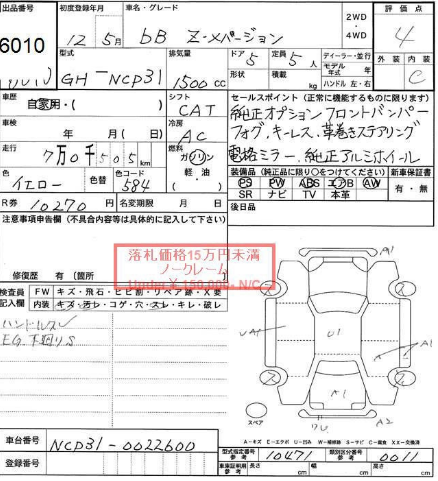 出品番号 初度登録年月 車名・グレード 2WD・4WD 評価点
6010 12年5月 bB Z-Xバージョン 4
型式 排気量 ドア 定員 ディーラー・並行 外装 内装
GH-NCP31 1500cc 5 5人 モデル年式 年 C
形状 積載 kg ハンドル 左・右
車歴 自家用・( ) シフト CAT セールスポイント(正常に機能するものに限ります)
車検 年 月( 日) 冷房 AC 純正オプションフロントバンパー
フォグ、キーレス、革巻きステアリング
走行 7万0千505km 燃料 ガソリン 軽油 ( )
電格ミラー、純正アルミホイール
色 イエロー 色替 色コード 584 装備品(純正品に限り○をつけてください) 新車保証書
PS PW ABS エアB AW 有・無
SR ナビ TV 本革
R券 10270円 名変期限 月 日 後日品
注意事項申告欄(不具合内容等は具体的に記入して下さい)
落札価格15万円未満
ノークレーム
Under ¥ 150,000. N/C
修復歴 有(箇所
検査員記入欄 FW キズ・飛石・ヒビ割・リペア跡・X要
内装 キズ・汚レ・コゲ・穴・スレ・キレ・破レ
ハンドルスレ
EG、下廻りS
A1
UA1
U1
A
A1
A1
スペア
A2
A-キズ E-エクボ U-凹み W-補修跡 S-サビ C-腐食 XX-交換済
車台番号 NCP31-0022600
型式指定番号 参考 10471 類別区分番号 参考 0011
登録番号
車庫証明用 参考 長さ cm 幅 cm 高さ cm